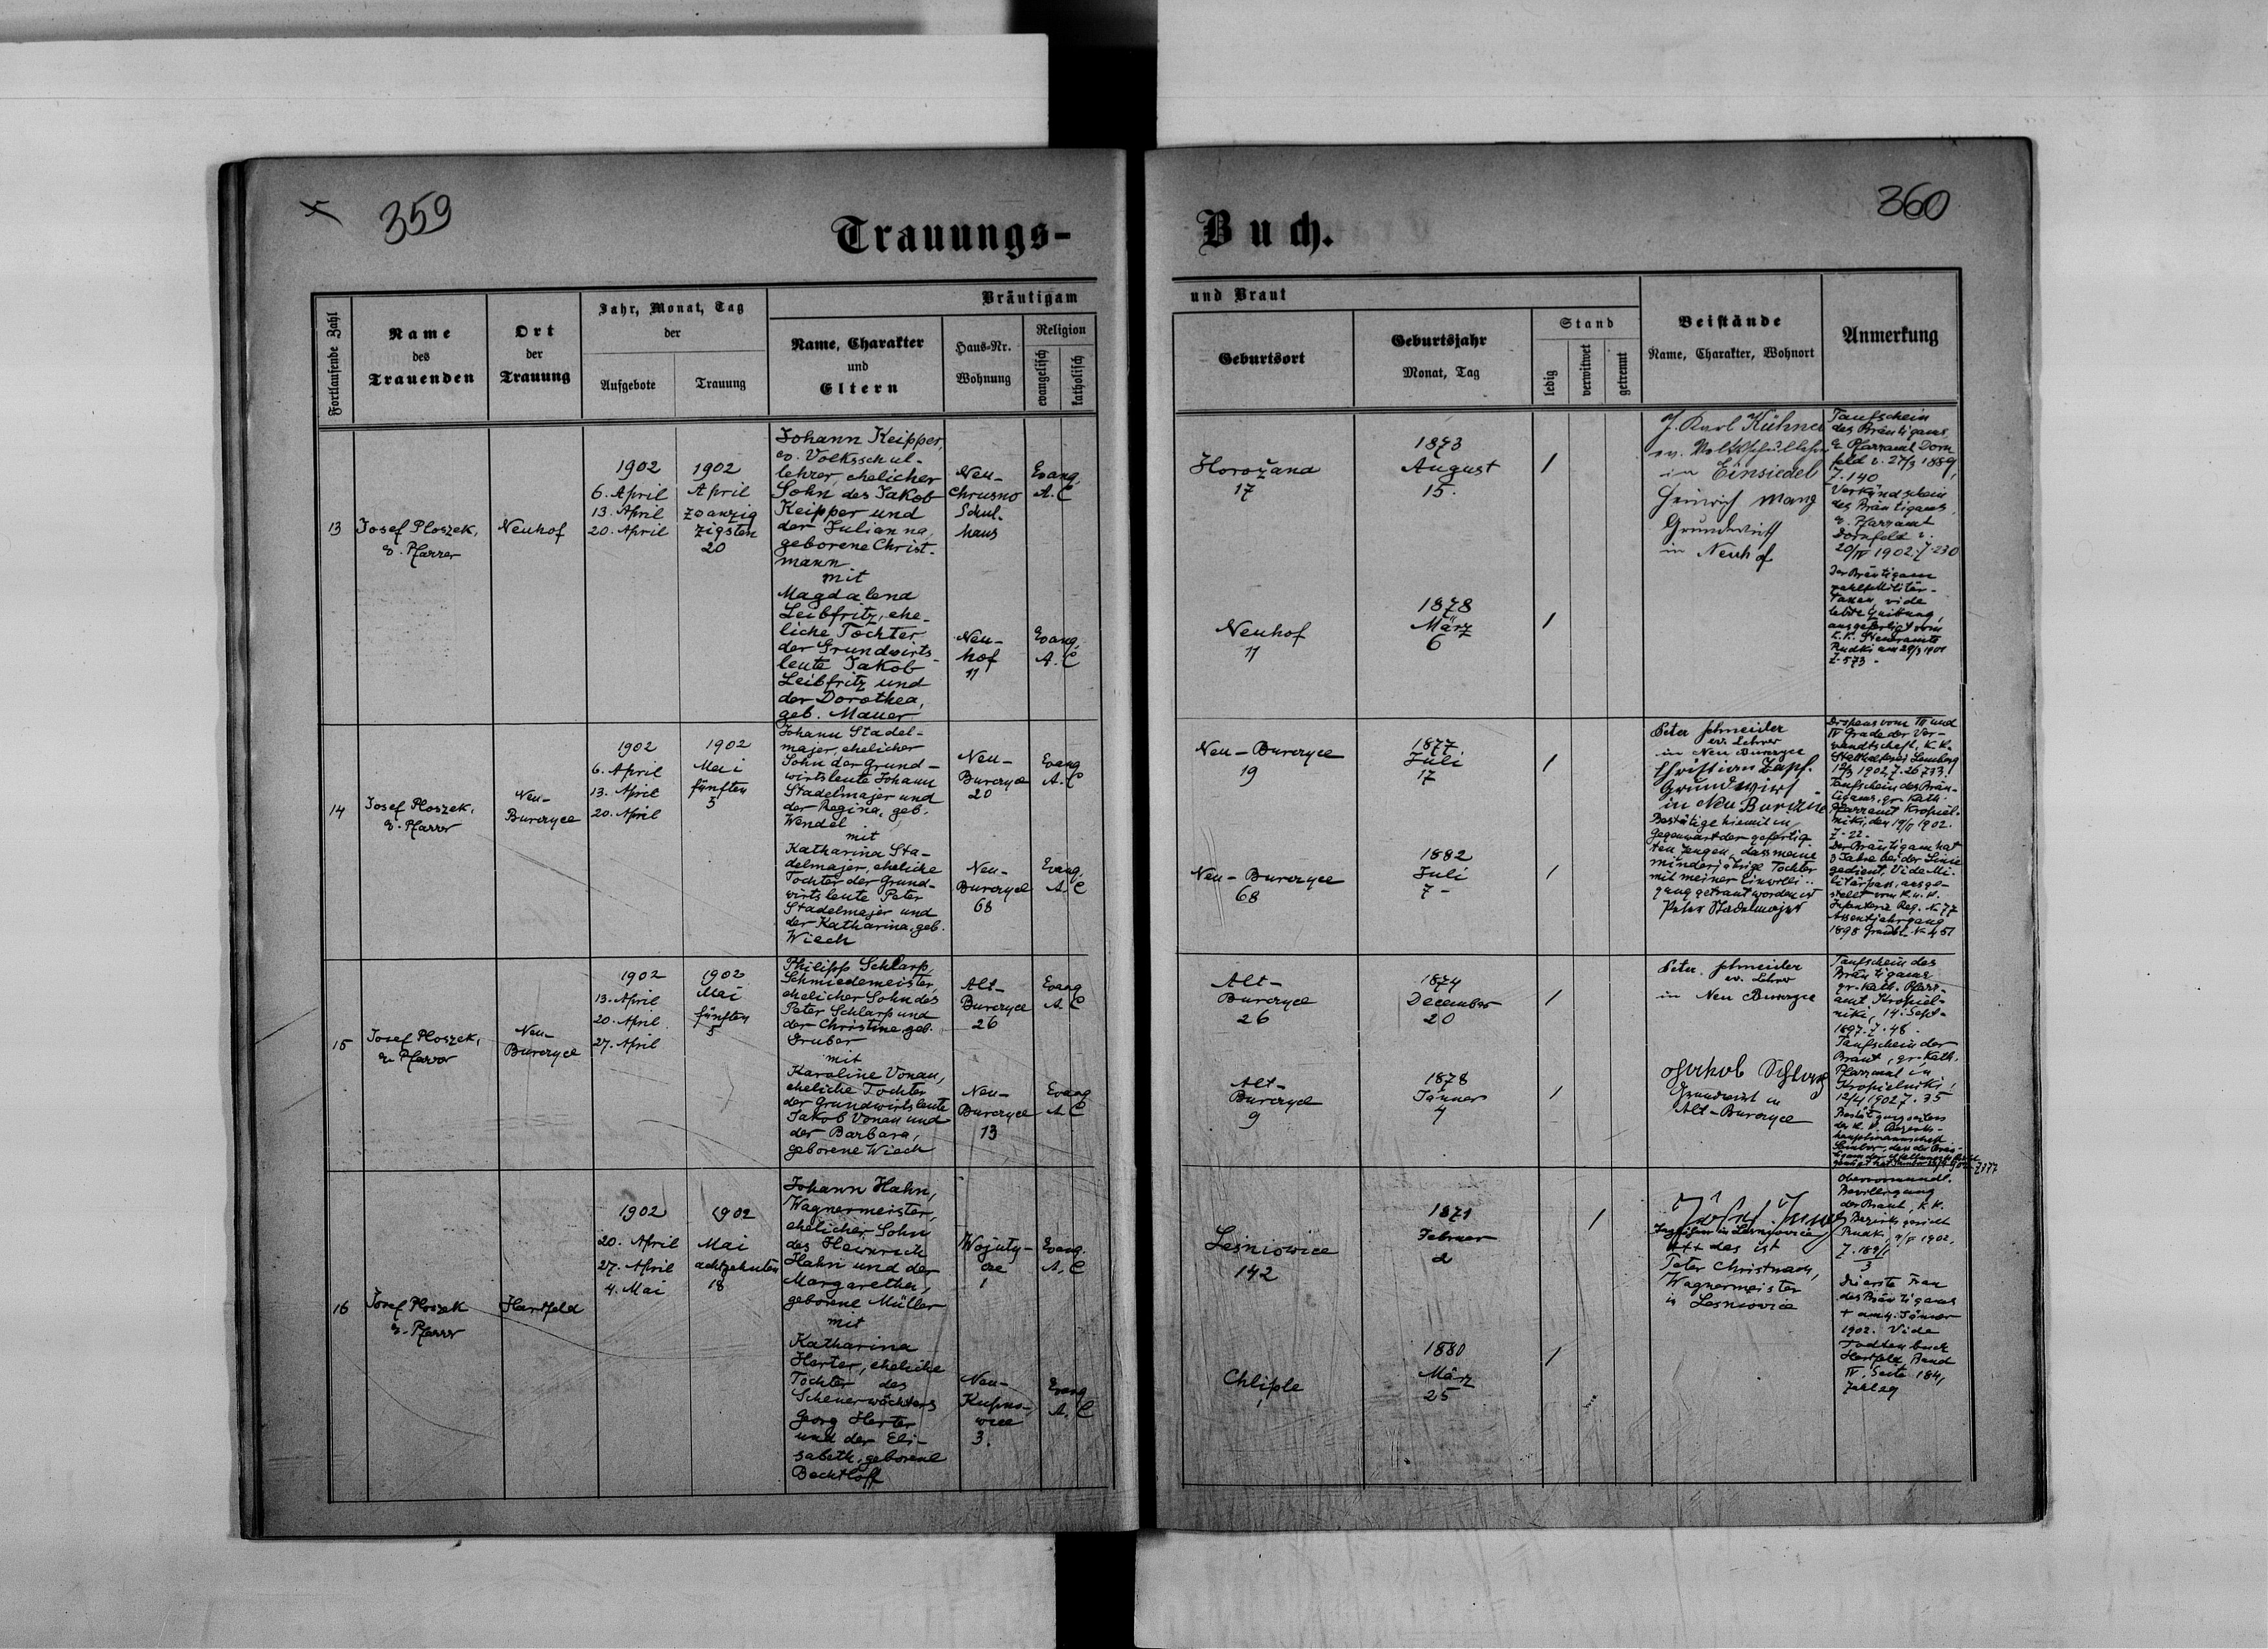 359
Trauungs-
Buch.
360
Fortlaufende Zahl
Name
des
Trauenden
Ort
der
Trauung
Jahr, Monat, Tag
der
Aufgebote
Trauung
Bräutigam
Name, Charakter
und
Eltern
Haus-Nr.
Wohnung
Religion
evangelisch
katholisch
und Braut
Geburtsort
Geburtsjahr
Monat, Tag
Stand
ledig
verwitwet
getrennt
Beistände
Name, Charakter, Wohnort
Anmerkung
13
Josef Ploszek,
ev. Pfarrer
Neuhof
1902
6. April
13. April
20. April
1902
April
zwanzig
zigsten
20
Johann Keipper,
ev. Volksschul-
lehrer, ehelicher
Sohn des Jakob
Keipper und
der Julianna,
geborene Christ-
mann
mit
Magdalena
Leibfritz, ehe-
liche Tochter
der Grundwirts-
leute Jakob
Leibfritz und
der Dorothea,
geb. Mauer
Neu-
Chrusno
Schul-
haus
Evang.
A. C
Neu-
hof
11
Evang.
A. C
Horożana
17
1873
August
15.
Neuhof
11
1878
März
6
J. Karl Kühner
ev. Volksschullehrer
in Einsiedel
Heinrich Manz
Grundwirth
in Neuhof
Taufschein
des Bräutigams,
ev. Pfarramt Dorn
feld v. 27/3 1889,
Z. 140
Verkündschein
des Bräutigams
ev. Pfarramt
Dornfeld v.
20/IV 1902. Z. 230
Der Bräutigam
zahlt Militär-
Taxen, vide
letzte Quittung,
ausgefertigt vom
K. K. Steueramte
Rudki am 28/3 1901
Z. 573 -
14
Josef Ploszek,
ev. Pfarrer
Neu-
Burczyce
1902
6. April
13. April
20. April
1902
Mai
fünften
5
Johann Stadel-
majer, ehelicher
Sohn der Grund-
wirtsleute Johann
Stadelmajer und
der Regina, geb.
Wendel
mit
Katharina Sta-
delmajer, eheliche
Tochter der Grund-
wirtsleute Peter
Stadelmajer und
der Katharina, geb.
Wiech
Neu-
Burczyce
20
Evang
A. C
Neu-
Burczyce
68
Evang.
A. C
Neu-Burczyce
19
1877.
Juli
17
Neu-Burczyce
68
1882
Juli
7 -
Peter Schneider
ev. Lehrer
in Neu Burczyce
Christian Zapf.
Grundwirt
in Neu Burczyce
Bestätige hiemit in
Gegenwart der gefertig-
ten Zeugen, dass meine
minderjährige Tochter
mit meiner Einwilli-
gung getraut worden ist
Peter Stadelmajer
Dispens vom III und
IV Grade der Ver-
wandtschaft, K. K.
Statthalterei Lemberg
12/3 1902, Z. 26733!
Taufschein des Bräu-
tigams, gr. kath.
Pfarramt Kropiel-
niki, den 14/II 1902.
Z. 22 -
Der Bräutigam hat
3 Jahre bei der Linie
gedient. Vide Mi-
litärpass, ausge-
stellt vom K. u. K.
Infanterie Reg. N. 77
Assentjahrgang
1898 Grundbl. N 451
15
Josef Ploszek,
ev. Pfarrer
Neu-
Burczyce
1902
13. April
20. April
27. April
1902
Mai
fünften
5
Philipp Schlarp,
Schmiedemeister,
ehelicher Sohn des
Peter Schlarp und
der Christine geb.
Gruber
mit
Karoline Vonau,
eheliche Tochter
der Grundwirtsleute
Jakob Vonau und
der Barbara,
geborene Wiech
Alt-
Burczyce
26
Evang
A. C
Neu-
Burczyce
13
Evang
A C
Alt-
Burczyce
26
1874
December
20
Alt-
Burczyce
9
1878
Jänner
4
Peter Schneider
ev. Lehrer
in Neu Burczyce
Jakob Schlarp
Grundwirt in
Alt-Burczyce
Taufschein des
Bräutigams
gr. kath. Pfarr-
amt Kropiel-
niki, 14. Sept.
1897. Z. 48.
Taufschein der
Braut, gr. kath.
Pfarramt in
Kropielniki,
12/4 1902 Z. 35
16
Josef Ploszek
ev. Pfarrer
Hartfeld
1902
20. April
27. April
4. Mai
1902
Mai
achtzehnten
18
Johann Hahn,
Wagnermeister,
ehelicher Sohn
des Heinrich
Hahn und der
Margaretha,
geborene Müller
mit
Katharina
Herter, eheliche
Tochter des
Scheuerwächters
Georg Herter
und der Eli-
sabeth, geborene
Bechtloff
Wojuty-
cze
1
Evang.
A. C
Neu-
Kupno-
wice
3.
Evang
A. C
Leśniowice
142
1871
Februar
2
Chliple
1
1880
März
25
in Lesniowice
+++ das ist
Peter Christmach,
Wagnermeister
in Lesniowice
Obervormundt.
Bewilligung
der Braut, K. K.
Bezirksgericht
Rudki,
1902.
Die erste Frau
des Bräutigams
+ am 4. Jänner
1902. Vide
Todtenbuch
Hartfeld, Band
IV, Seite 184,